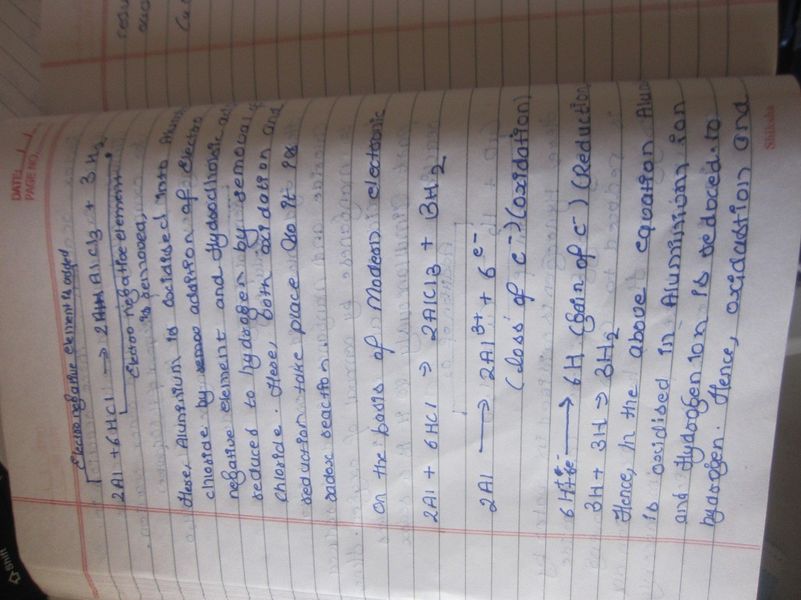 DATE
PAGE NO.
Electro negative element is added
2Al + 6HCl → 2AlCl3 + 3H2
Electro negative element
is removed,
Here, Aluminium is oxidised into
chloride by addition of electro
negative element and Hydrochloric
reduced to hydrogen by removal of
chloride. Here, both oxidation and
reduction take place so it is
redox reaction.
On the basis of Modern electronic
2Al + 6HCl → 2AlCl3 + 3H2
2Al → 2Al3+ + 6e-
(Loss of e-) (oxidation)
6H+ → 6H (Gain of e-) (Reduction
3H + 3H → 3H2
Hence, in the above equation
is oxidised in Aluminium ion
and Hydrogen ion is reduced to
hydrogen. Hence, oxidation and
Shiksha
Shift